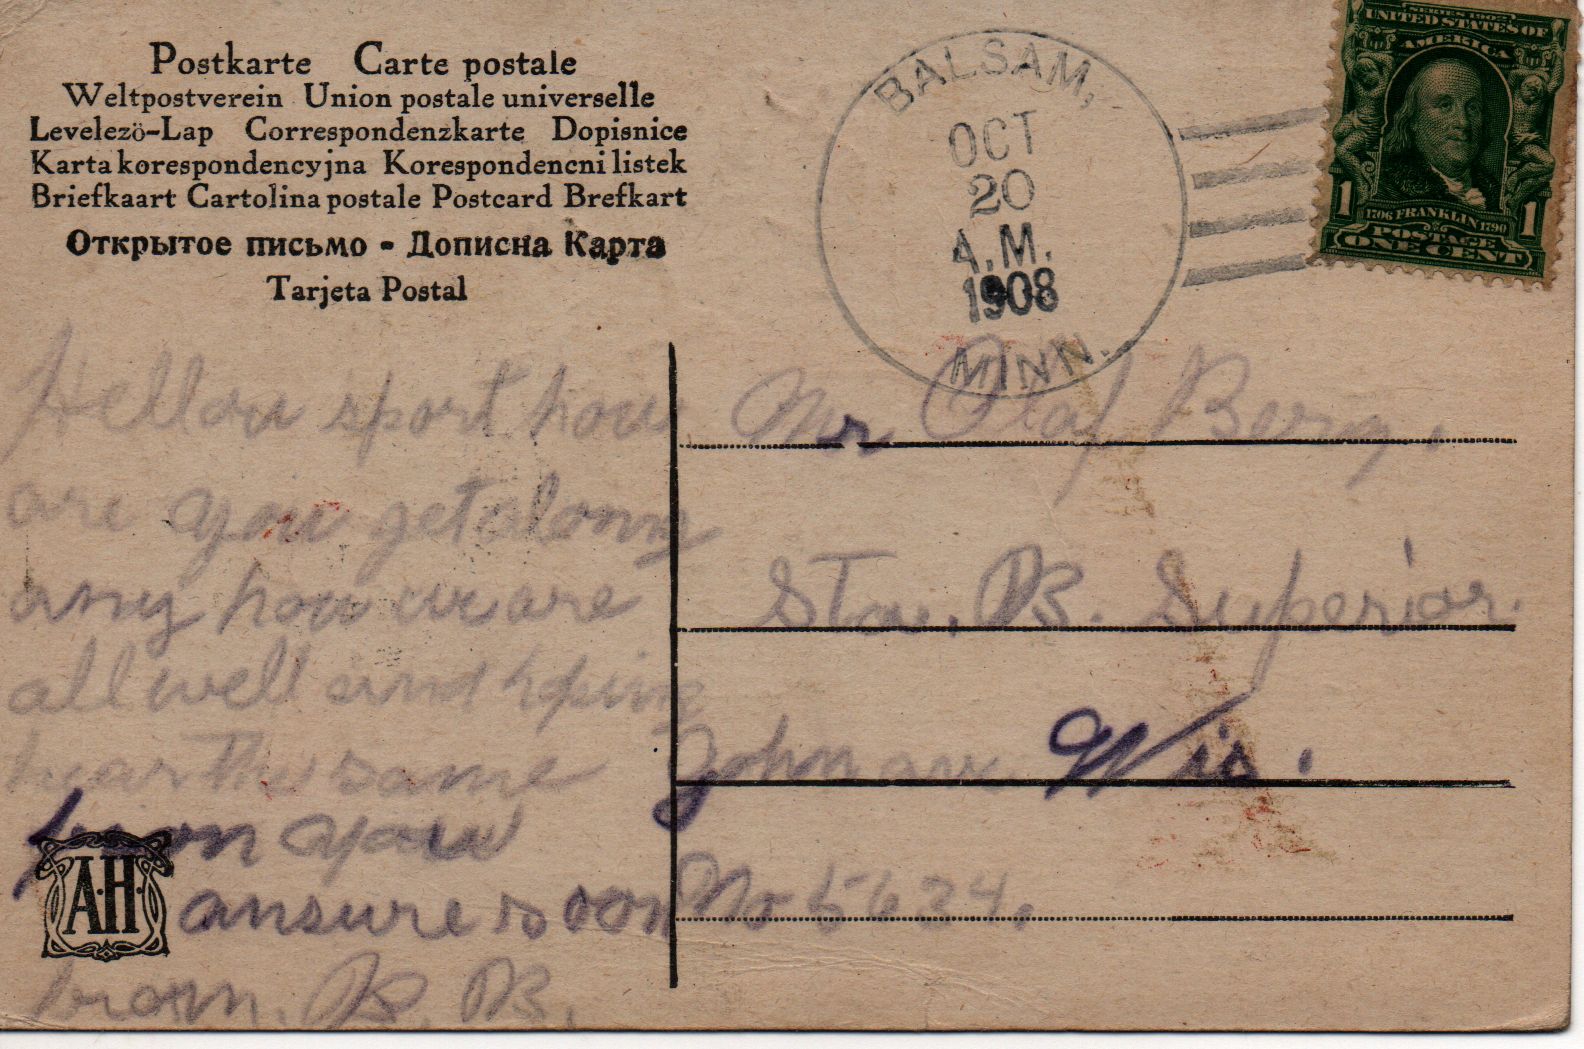 Postkarte Carte postale
Weltpostverein Union postale universelle
Levelezö-Lap Correspondenzkarte Dopisnice
Karta korespondencyjna Korespondencni listek
Briefkaart Cartolina postale Postcard Brefkart
Открытое письмо - Дописна Карта
Tarjeta Postal
BALSAM,
OCT
20
A.M.
1908
MINN.
SERIES 1902
UNITED STATES OF
AMERICA
1 1706 FRANKLIN 1790 1
POSTAGE
ONE CENT
Hellou sport how
are you get along
any how we are
all well and hping
hear the same
from you
ansure soon
from. B. B.
A.H.
Mr Olaf Berg.
Sta. B. Superior.
John av Wis.
No 5624.